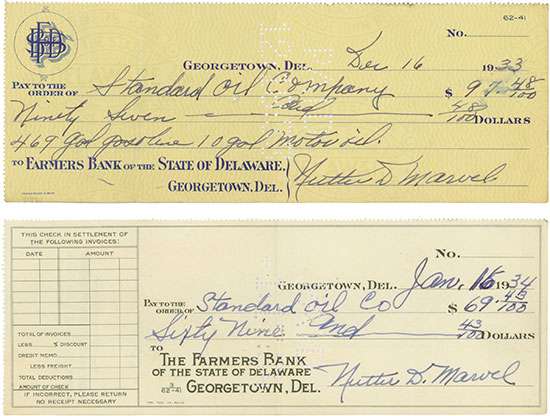 62-41
No.
GEORGETOWN, DEL. Dec 16 1933
PAY TO THE ORDER OF Standard Oil Company $ 97.48/100
Ninety Seven and 48/100 DOLLARS
469 gal gasoline 10 gal Motor oil.
TO FARMERS BANK OF THE STATE OF DELAWARE.
GEORGETOWN, DEL. Nutter D. Marvel
THIS CHECK IN SETTLEMENT OF
THE FOLLOWING INVOICES:
DATE AMOUNT
TOTAL OF INVOICES
LESS % DISCOUNT
CREDIT MEMO.
LESS FREIGHT
TOTAL DEDUCTIONS
AMOUNT OF CHECK
IF INCORRECT, PLEASE RETURN
NO RECEIPT NECESSARY
No.
GEORGETOWN, DEL. Jan, 16 1934
PAY TO THE ORDER OF Standard Oil Co $ 69.43/100
Sixty Nine and 43/100 DOLLARS
TO
THE FARMERS BANK
OF THE STATE OF DELAWARE
3 62-41 GEORGETOWN, DEL.
Nutter D. Marvel